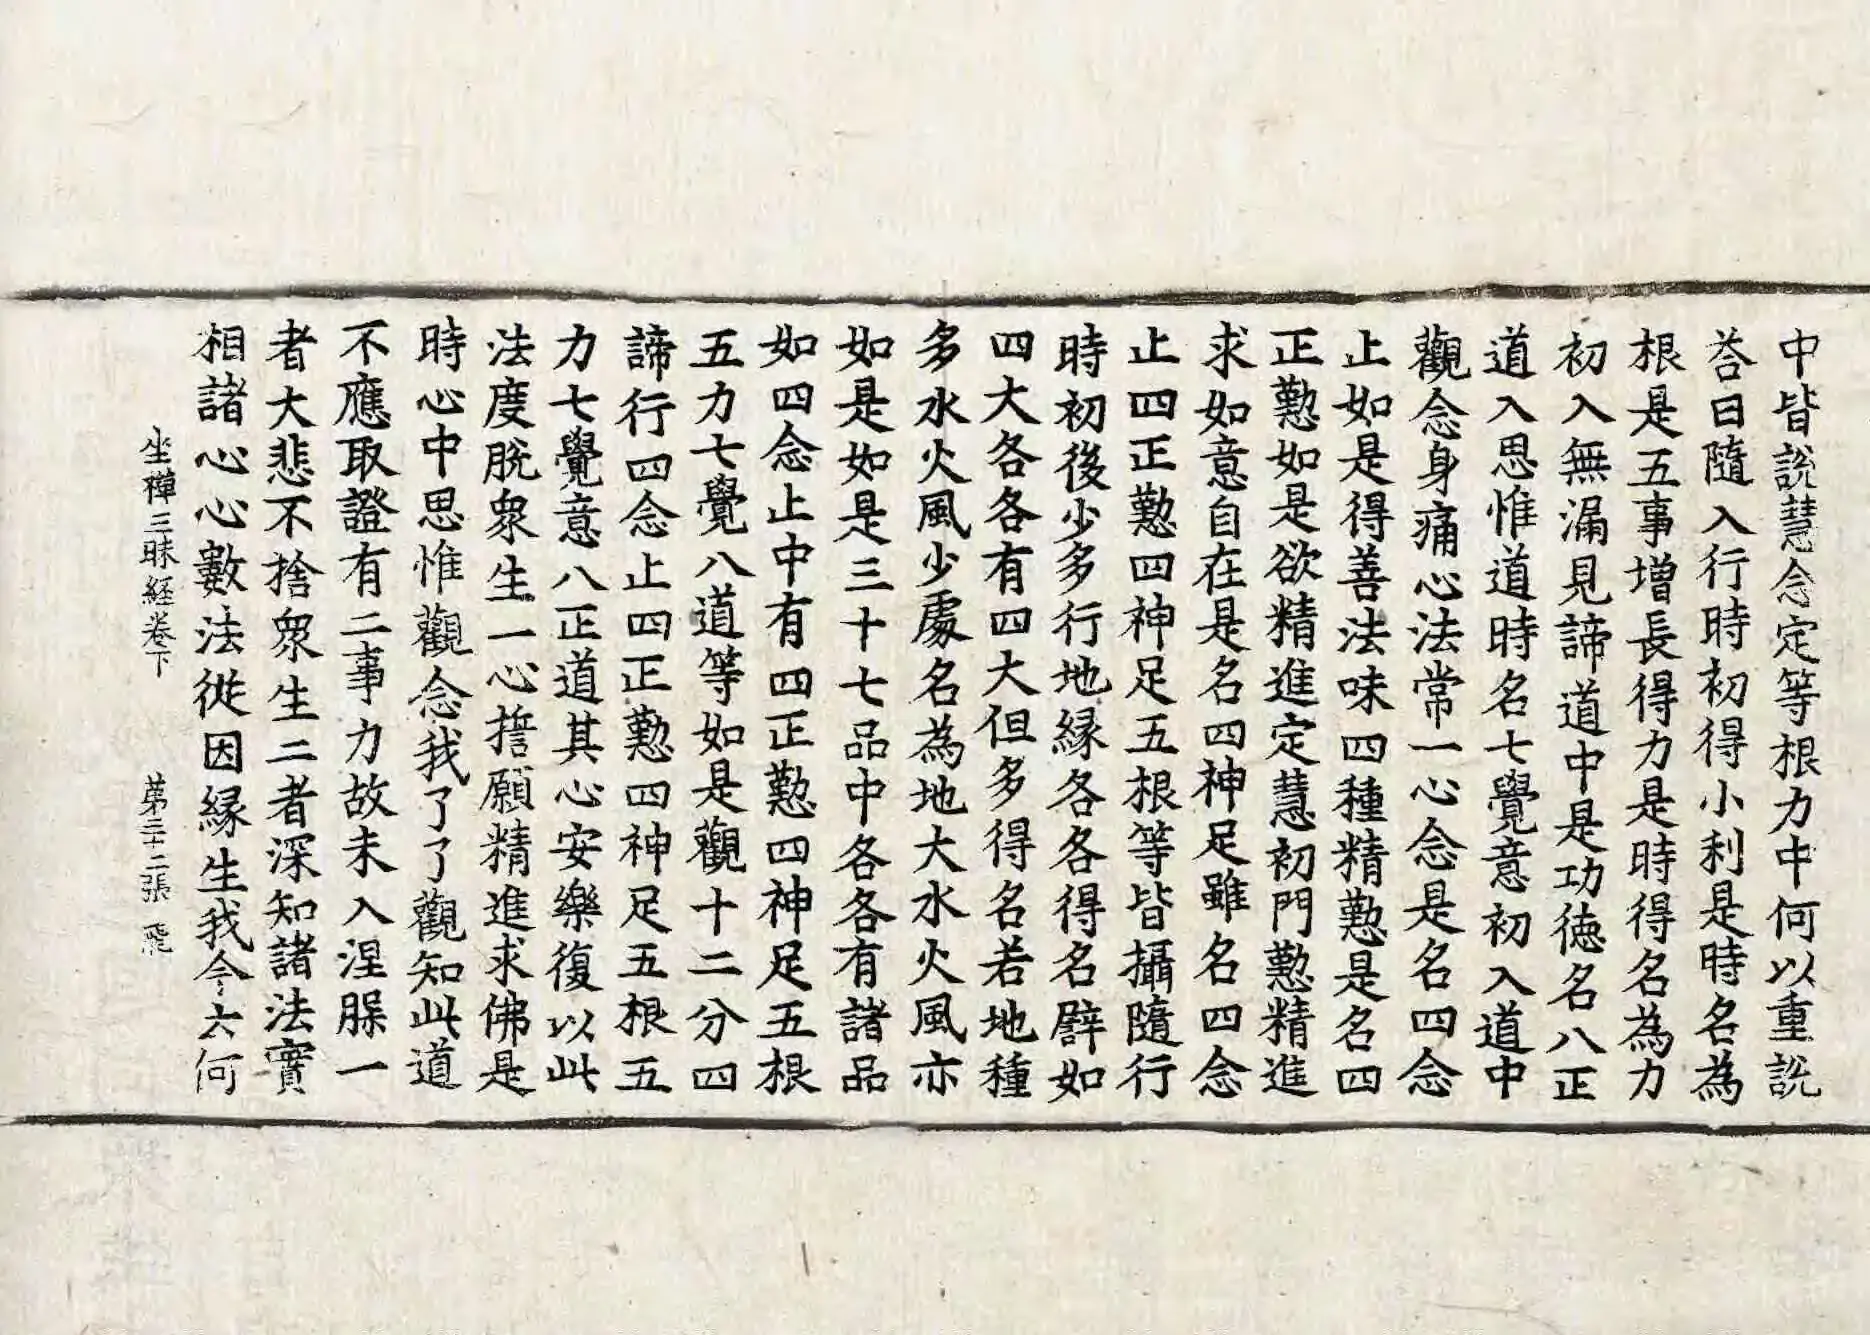 中皆說慧念定等根力中何以重說
荅曰隨入行時初得小利是時名為
根是五事增長得力是時得名為力
初入無漏見諦道中是功德名八正
道入思惟道時名七覺意初入道中
觀念身痛心法常一心念是名四念
止如是得善法味四種精懃是名四
正懃如是欲精進定慧初門懃精進
求如意自在是名四神足雖名四念
止四正懃四神足五根等皆攝隨行
時初後少多行地緣各各得名譬如
四大各各有四大但多得名若地種
多水火風少處名為地大水火風亦
如是如是三十七品中各各有諸品
如四念止中有四正懃四神足五根
五力七覺八道等如是觀十二分四
諦行四念止四正懃四神足五根五
力七覺意八正道其心安樂復以此
法度脫眾生一心誓願精進求佛是
時心中思惟觀念我了了觀知此道
不應取證有二事力故未入涅槃一
者大悲不捨眾生二者深知諸法實
相諸心心數法從因緣生我今云何
坐禪三昧経卷下 第三十二張 飛